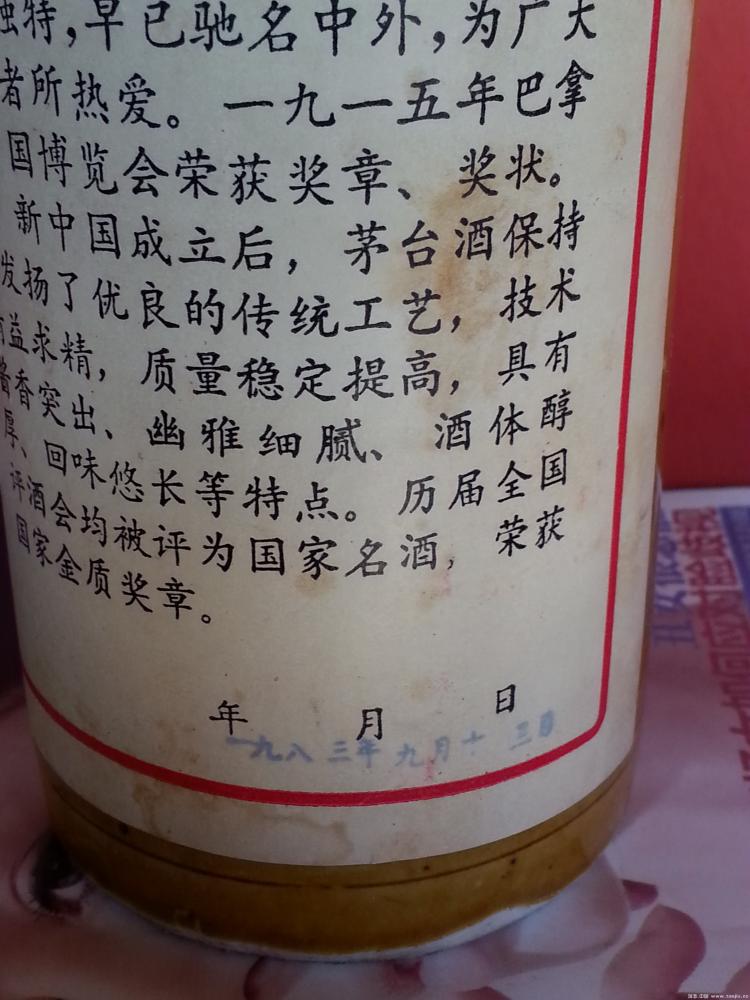 独特，早已驰名中外，为广大
者所热爱。一九一五年巴拿
国博览会荣获奖章、奖状。
新中国成立后，茅台酒保持
发扬了优良的传统工艺，技术
益求精，质量稳定提高，具有
酱香突出、幽雅细腻、酒体醇
厚、回味悠长等特点。历届全国
评酒会均被评为国家名酒，荣获
国家金质奖章。
年 月 日
一九八三年九月十三日